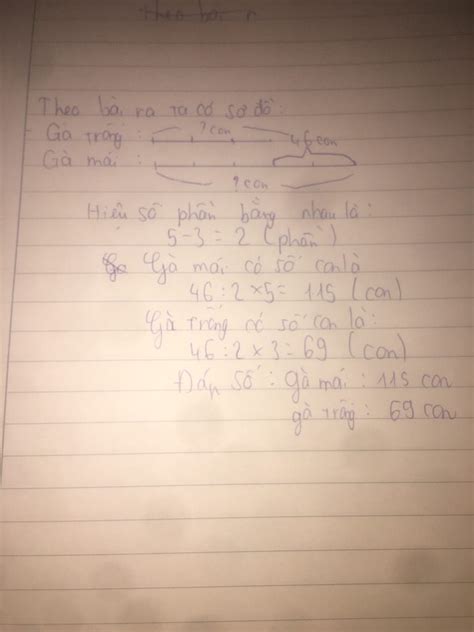 Theo bài r
Theo bài ra ta có sơ đồ:
Gà trống: ? con
46 con
Gà mái :
? con
Hiệu số phần bằng nhau là:
5-3=2 (phần)
Gà mái có số con là
46:2×5= 115 (con)
Gà trống có số con là:
46:2×3=69 (con)
Đáp số: gà mái: 115 con
gà trống: 69 con